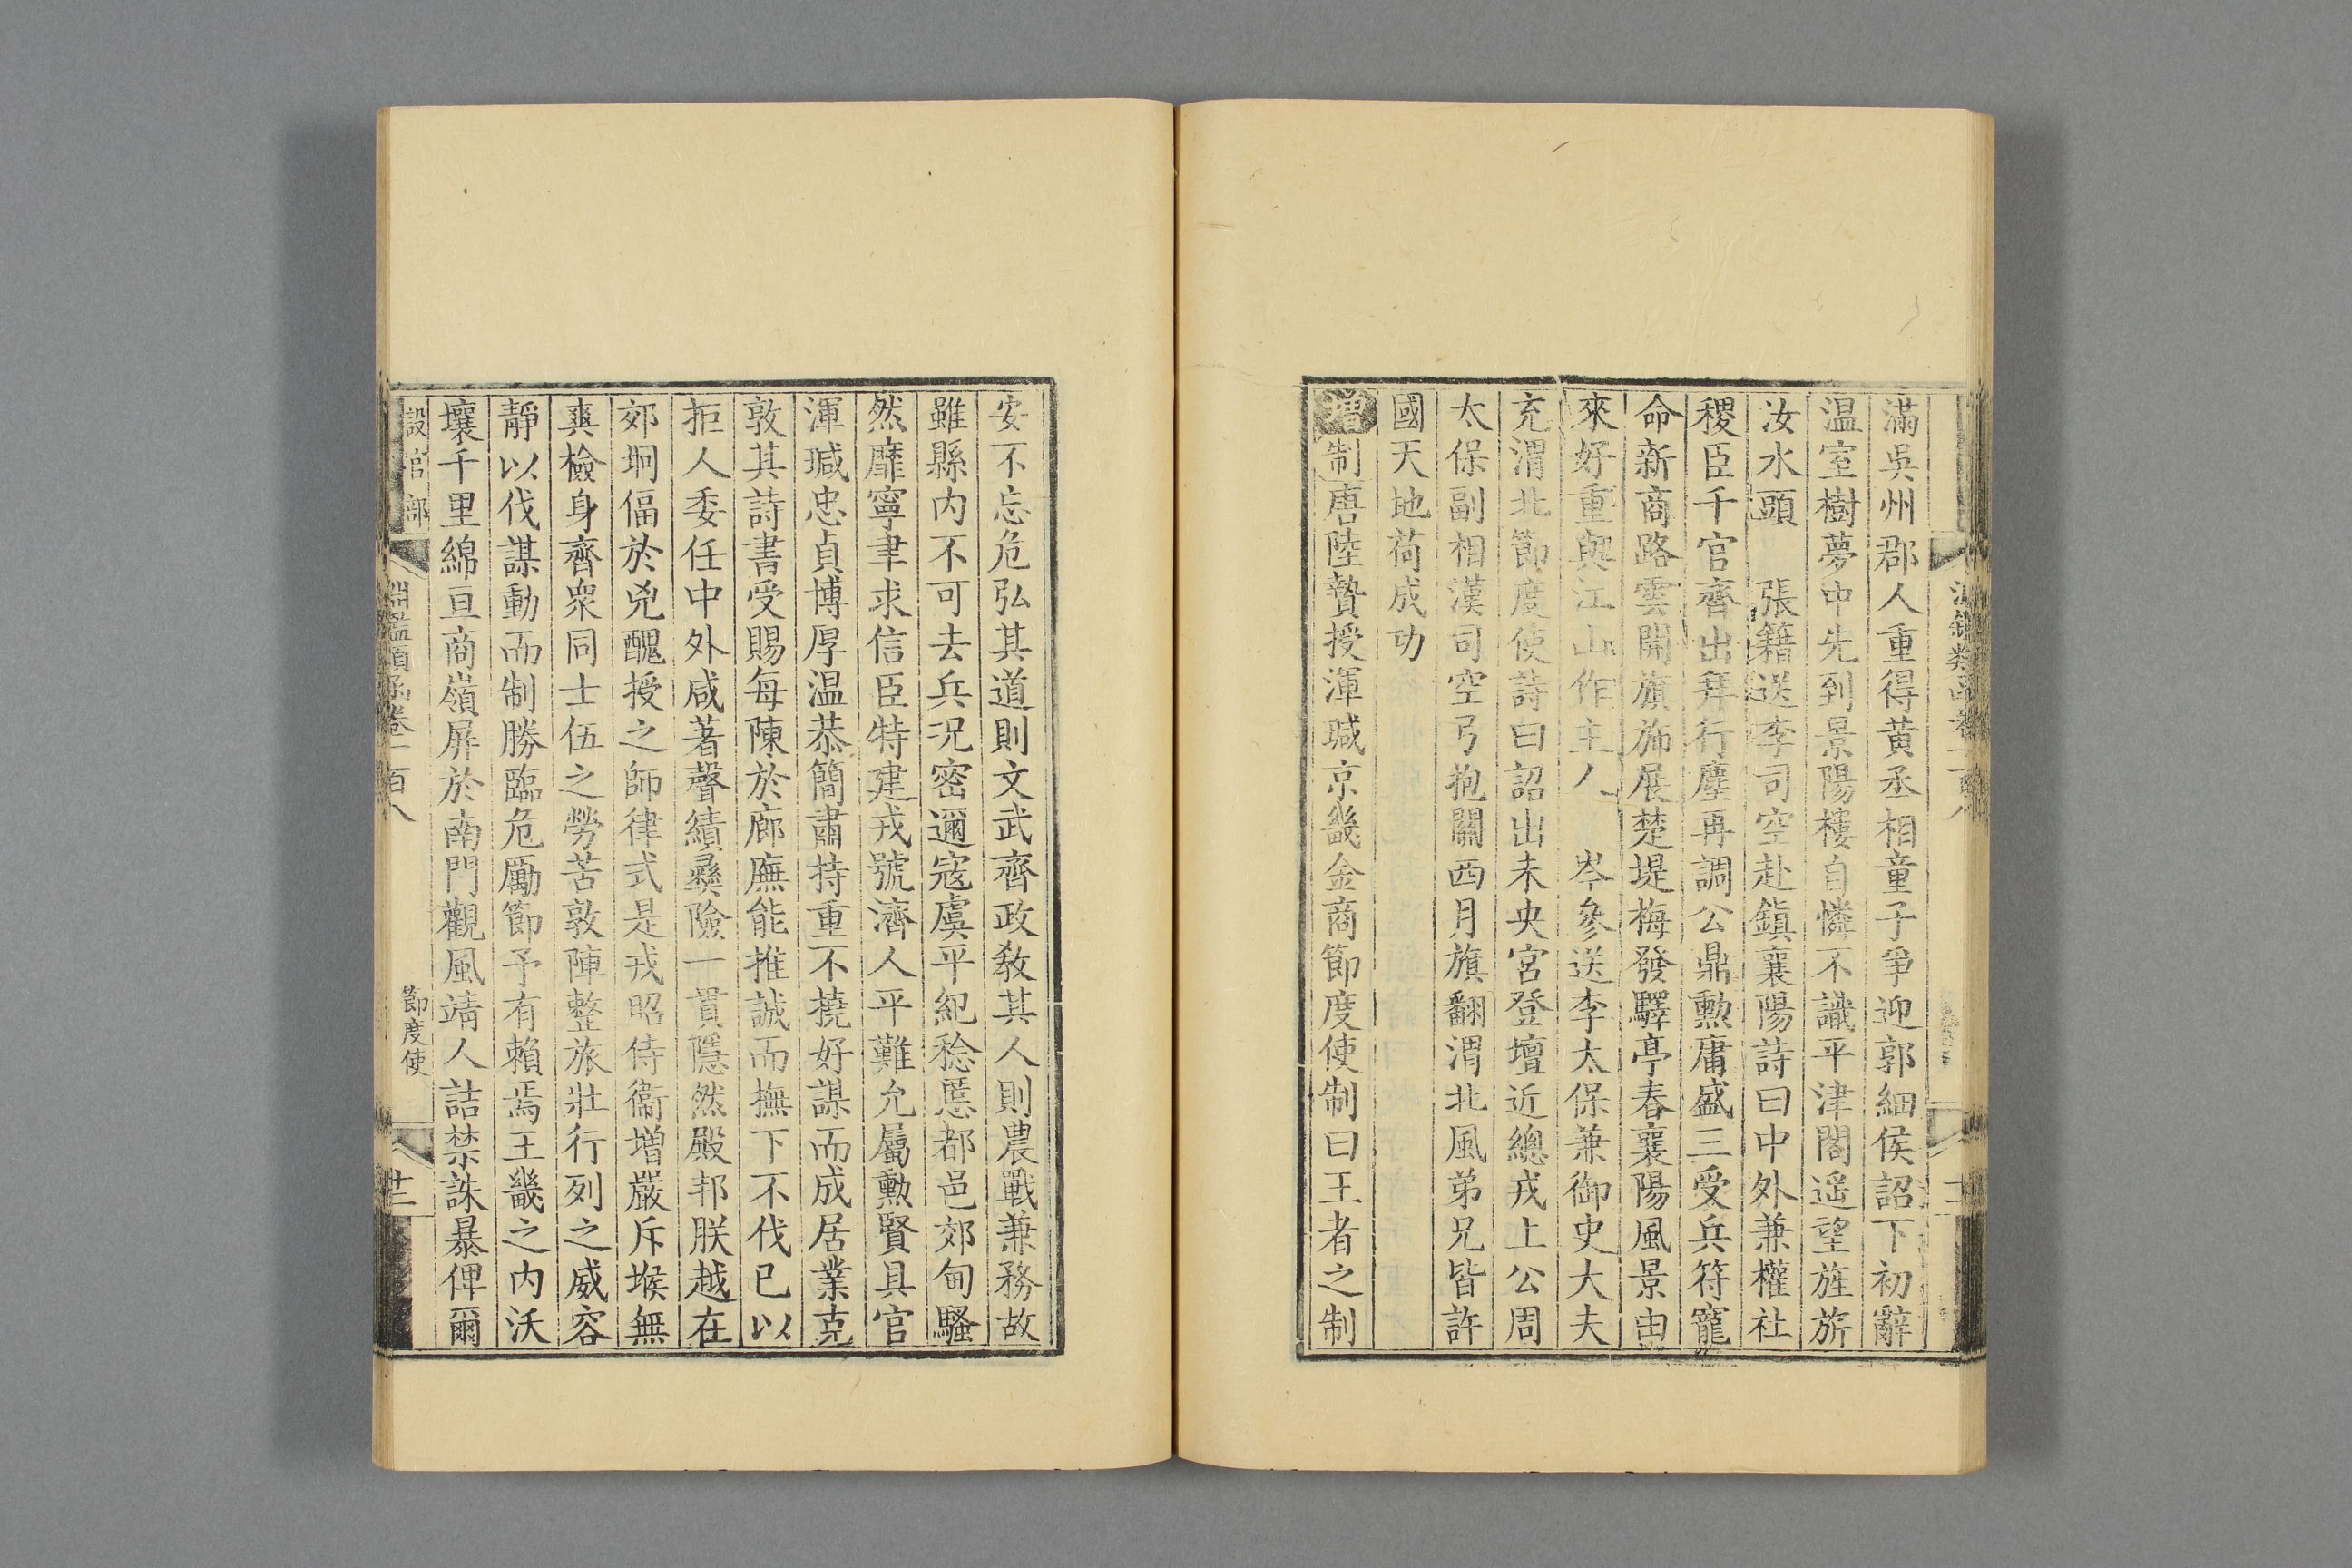 滿吳州郡人重得黃丞相童子爭迎郭細侯詔下初辭
温室樹夢中先到景陽樓自憐不識平津閣遥望旌旂
汝水頭　張籍送李司空赴鎮襄陽詩曰中外兼權社
稷臣千官齊出拜行塵再調公鼎勲庸盛三受兵符寵
命新商路雲開旗旆展楚堤梅發驛亭春襄陽風景由
來好重與江山作主人　岑參送李太保兼御史大夫
充渭北節度使詩曰詔出未央宮登壇近總戎上公周
太保副相漢司空弓抱關西月旗翻渭北風弟兄皆許
國天地荷成功
增制唐陸贄授渾瑊京畿金商節度使制曰王者之制
安不忘危弘其道則文武齊政敎其人則農戰兼務故
雖縣内不可去兵况密邇寇虞平紀稔慝都邑郊甸騷
然靡寧聿求信臣特建戎號濟人平難允屬勲賢具官
渾瑊忠貞博厚温恭簡肅持重不撓好謀而成居業克
敦其詩書受賜每陳於廊廡能推誠而撫下不伐已以
拒人委任中外咸著聲績彞險一貫隱然殿邦朕越在
郊坰偪於兇醜授之師律式是戎昭侍衞增嚴斥堠無
爽檢身齊衆同士伍之勞苦敦陣整旅壯行列之威容
靜以伐謀動而制勝臨危勵節予有賴焉王畿之内沃
壤千里綿亘商嶺屏於南門觀風靖人詰禁誅暴俾爾
設官部
淵鑑類函卷一百八
節度使